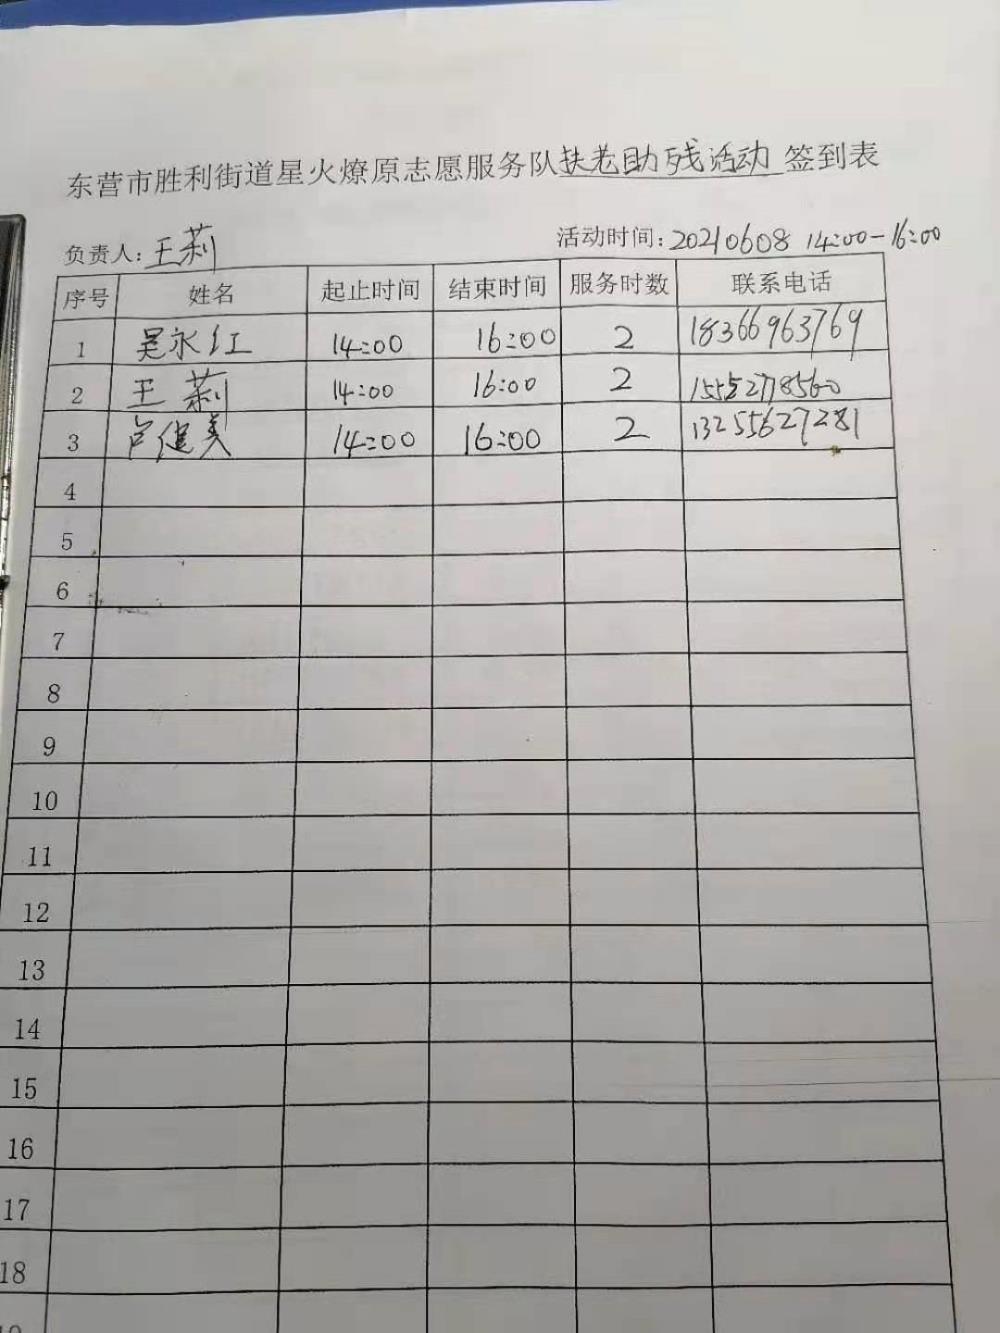 东营市胜利街道星火燎原志愿服务队扶老助残活动 签到表
负责人: 王莉 活动时间: 20210608 14:00-16:00
序号 姓名 起止时间 结束时间 服务时数 联系电话
1 吴永红 14:00 16:00 2 18366963769
2 王莉 14:00 16:00 2 15552778560
3 卢健美 14:00 16:00 2 13255627281
4
5
6
7
8
9
10
11
12
13
14
15
16
17
18